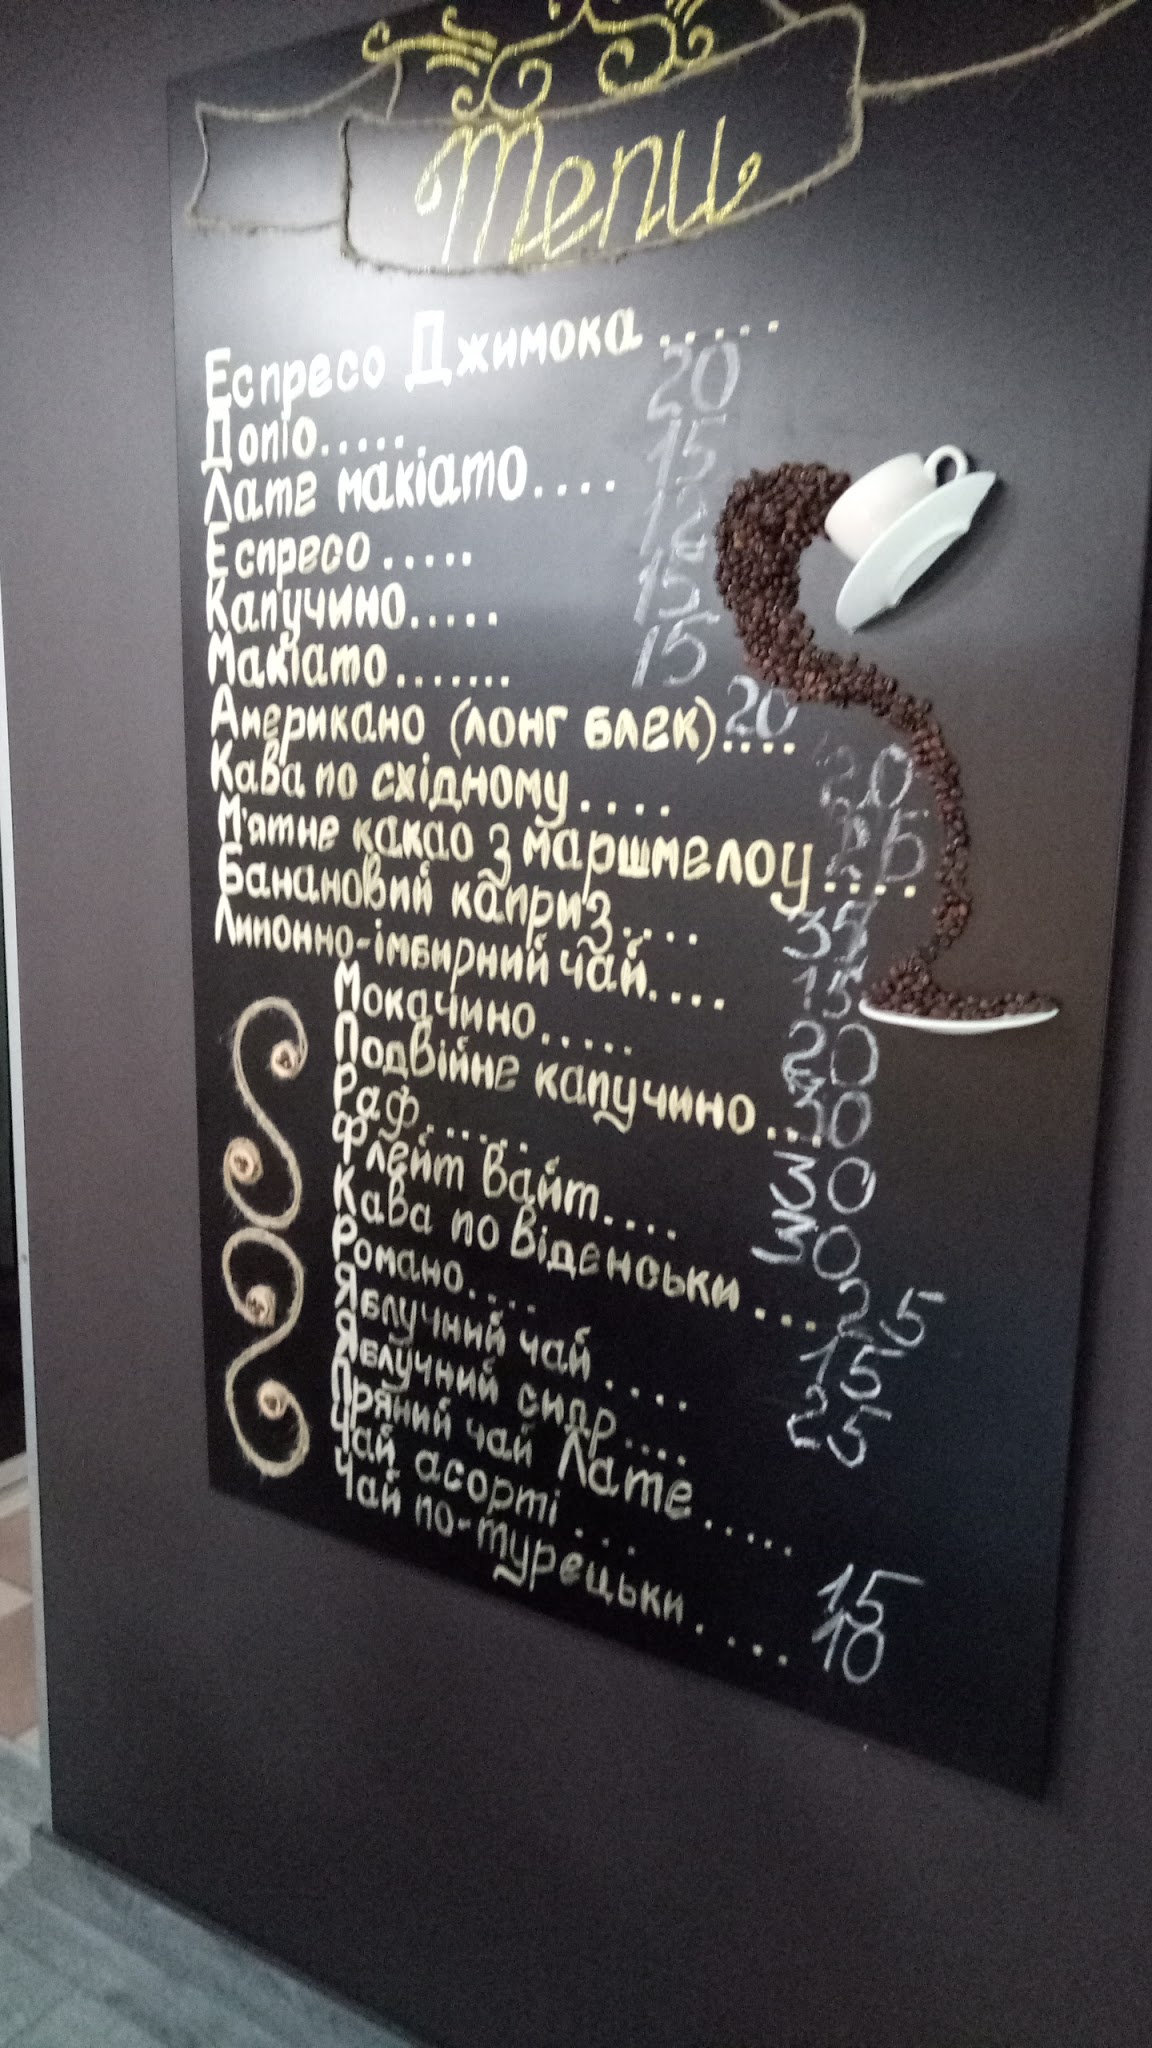 Menu
Еспресо Джимока.....
20
Допіо.....
15
Лате макіато....
Еспресо.....
15
Капучино.....
15
Макіато.......
20
Американо (лонг блек)....
20
Кава по східному....
М'ятне какао з маршмелоу....
35
Банановий каприз....
15
Липонно-імбирний чай....
20
Мокачино.....
30
Подвійне капучино...
30
Раф......
30
Флейт вайт....
25
Кава по віденськи...
15
Романо....
25
Яблучний чай....
Яблучний сидр....
Пряний чай Лате.....
15
Чай асорті...
10
Чай по-турецьки.....